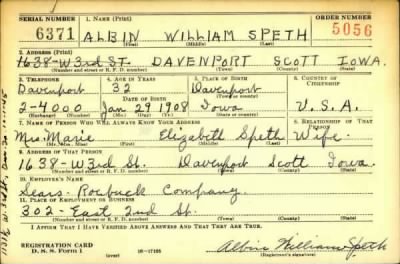 SERIAL NUMBER 1. NAME (Print) ORDER NUMBER
6371 ALBIN WILLIAM SPETH 5056
(First) (Middle) (Last)
2. ADDRESS (Print)
1638-W3rd ST. DAVENPORT SCOTT IOWA.
(Number and street or R. F. D. number) (Town) (County) (State)
3. TELEPHONE 4. AGE IN YEARS 5. PLACE OF BIRTH 6. COUNTRY OF CITIZENSHIP
Davenport 32 Davenport
DATE OF BIRTH (Town or county)
2-4000 Jan 29 1908 Iowa U.S.A.
(Exchange) (Number) (Mo.) (Day) (Yr.) (State or country)
7. NAME OF PERSON WHO WILL ALWAYS KNOW YOUR ADDRESS 8. RELATIONSHIP OF THAT PERSON
Mrs. Marie Elizabeth Speth Wife.
(Mr., Mrs., Miss) (First) (Middle) (Last)
9. ADDRESS OF THAT PERSON
1638-W3rd St. Davenport Scott Iowa.
(Number and street or R. F. D. number) (Town) (County) (State)
10. EMPLOYER'S NAME
Sears-Roebuck Company
11. PLACE OF EMPLOYMENT OR BUSINESS
302 East 2nd St.
(Number and street or R. F. D. number) (Town) (County) (State)
I AFFIRM THAT I HAVE VERIFIED ABOVE ANSWERS AND THAT THEY ARE TRUE.
REGISTRATION CARD
D. S. S. Form 1 (over) 16-17105 Albin William Speth
(Registrant's signature)